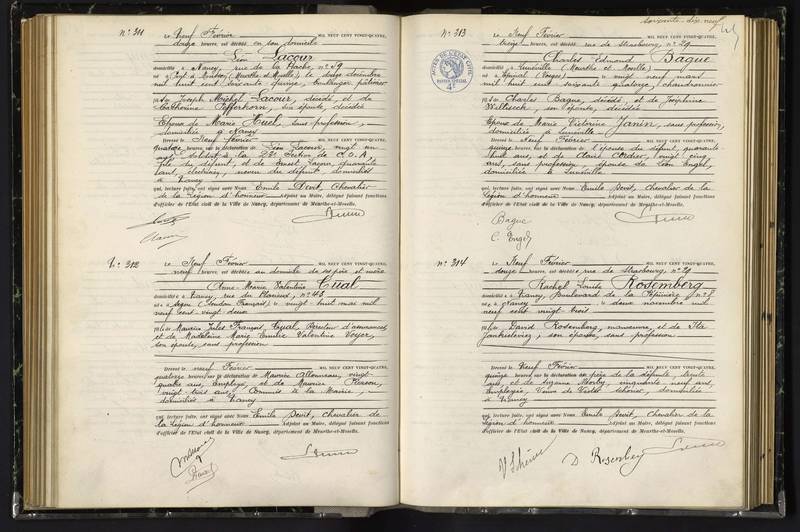 N° 311
Le Neuf Février MIL NEUF CENT VINGT-QUATRE,
douze heures, est décédé en son domicile
Léon Lacour
domicilié à Nancy, rue de la Hache, n° 59
mil huit cent soixante quinze, boulanger pâtissier
fils de Joseph Michel Lacour, décédé, et de
Catherine son épouse, décédée
Epoux de Marie Huel, sans profession,
domiciliée à Nancy
Dressé le Neuf février MIL NEUF CENT VINGT-QUATRE,
quatorze heures, sur la déclaration de Léon Lacour, vingt un
ans, soldat à la 23e Section de C.O.A.
fils du défunt, et de Ernest Lacour, quarante
huit, électricien, neveu du défunt, domiciliés
à Nancy
qui, lecture faite, ont signé avec Nous Emile Devit, Chevalier
de la Légion d'honneur Adjoint au Maire, délégué faisant fonctions
d'officier de l'Etat civil de la Ville de Nancy, département de Meurthe-et-Moselle.
N° 312
Le Neuf Février MIL NEUF CENT VINGT-QUATRE,
neuf heures, est décédée au domicile de ses père et mère
Anne-Marie Valentine Cual
domiciliée à Nancy, rue du Placieux, n° 43
vingt-huit mai mil
neuf cent vingt-deux
fille de Maurice Jules François Cual, Directeur d'assurances,
et de Madeleine Marie Emilie Valentine Voyer,
son épouse, sans profession
Dressé le neuf Février MIL NEUF CENT VINGT-QUATRE,
quatorze heures, sur la déclaration de Maurice Allonneau, vingt-
quatre ans, Employé, et de Maurice Pierson,
vingt-trois ans, Commis à la Mairie,
domiciliés à Nancy
qui, lecture faite, ont signé avec Nous Emile Devit, chevalier de
la Légion d'honneur Adjoint au Maire, délégué faisant fonctions
d'officier de l'Etat civil de la Ville de Nancy, département de Meurthe-et-Moselle.
soixante-dix-neuf
N° 313
Le Neuf Février MIL NEUF CENT VINGT-QUATRE,
treize heures, est décédé rue de Strasbourg, n° 29
Charles Edmond Bague
domicilié à Lunéville (Meurthe et Moselle)
né à Epinal (Vosges) le vingt neuf mars
mil huit cent soixante quatorze, chaudronnier
fils de Charles Bague, décédé, et de Joséphine
son épouse, décédée
Epoux de Marie Victorine Janin, sans profession,
domiciliée à Lunéville
Dressé le Neuf Février MIL NEUF CENT VINGT-QUATRE,
quinze heures, sur la déclaration de l'épouse du défunt, quarante
huit ans, et de Claire Cordier, vingt cinq
ans, sans profession, épouse de Léon Engel,
domiciliée à Lunéville
qui, lecture faite, ont signé avec Nous Emile Devit, chevalier de la
Légion d'honneur Adjoint au Maire, délégué faisant fonctions
d'officier de l'Etat civil de la Ville de Nancy, département de Meurthe-et-Moselle.
Bague
C. Engel
N° 314
Le Neuf Février MIL NEUF CENT VINGT-QUATRE,
douze heures, est décédée rue de Strasbourg, n° 29
Rachel Louise Rosemberg
domiciliée à Nancy, Boulevard de la Pépinière, n° 8
née à Nancy le deux novembre mil
neuf cent vingt trois
fille de David Rosemberg, manœuvre, et de
son épouse, sans profession
Dressé le Neuf Février MIL NEUF CENT VINGT-QUATRE,
quinze heures, sur la déclaration du père de la défunte, trente
ans, et de Suzanne cinquante neuf ans,
Employée, Veuve de Victor domiciliés
à Nancy
qui, lecture faite, ont signé avec Nous Emile Devit, chevalier de la
Légion d'honneur Adjoint au Maire, délégué faisant fonctions
d'officier de l'Etat civil de la Ville de Nancy, département de Meurthe-et-Moselle.
D Rosemberg